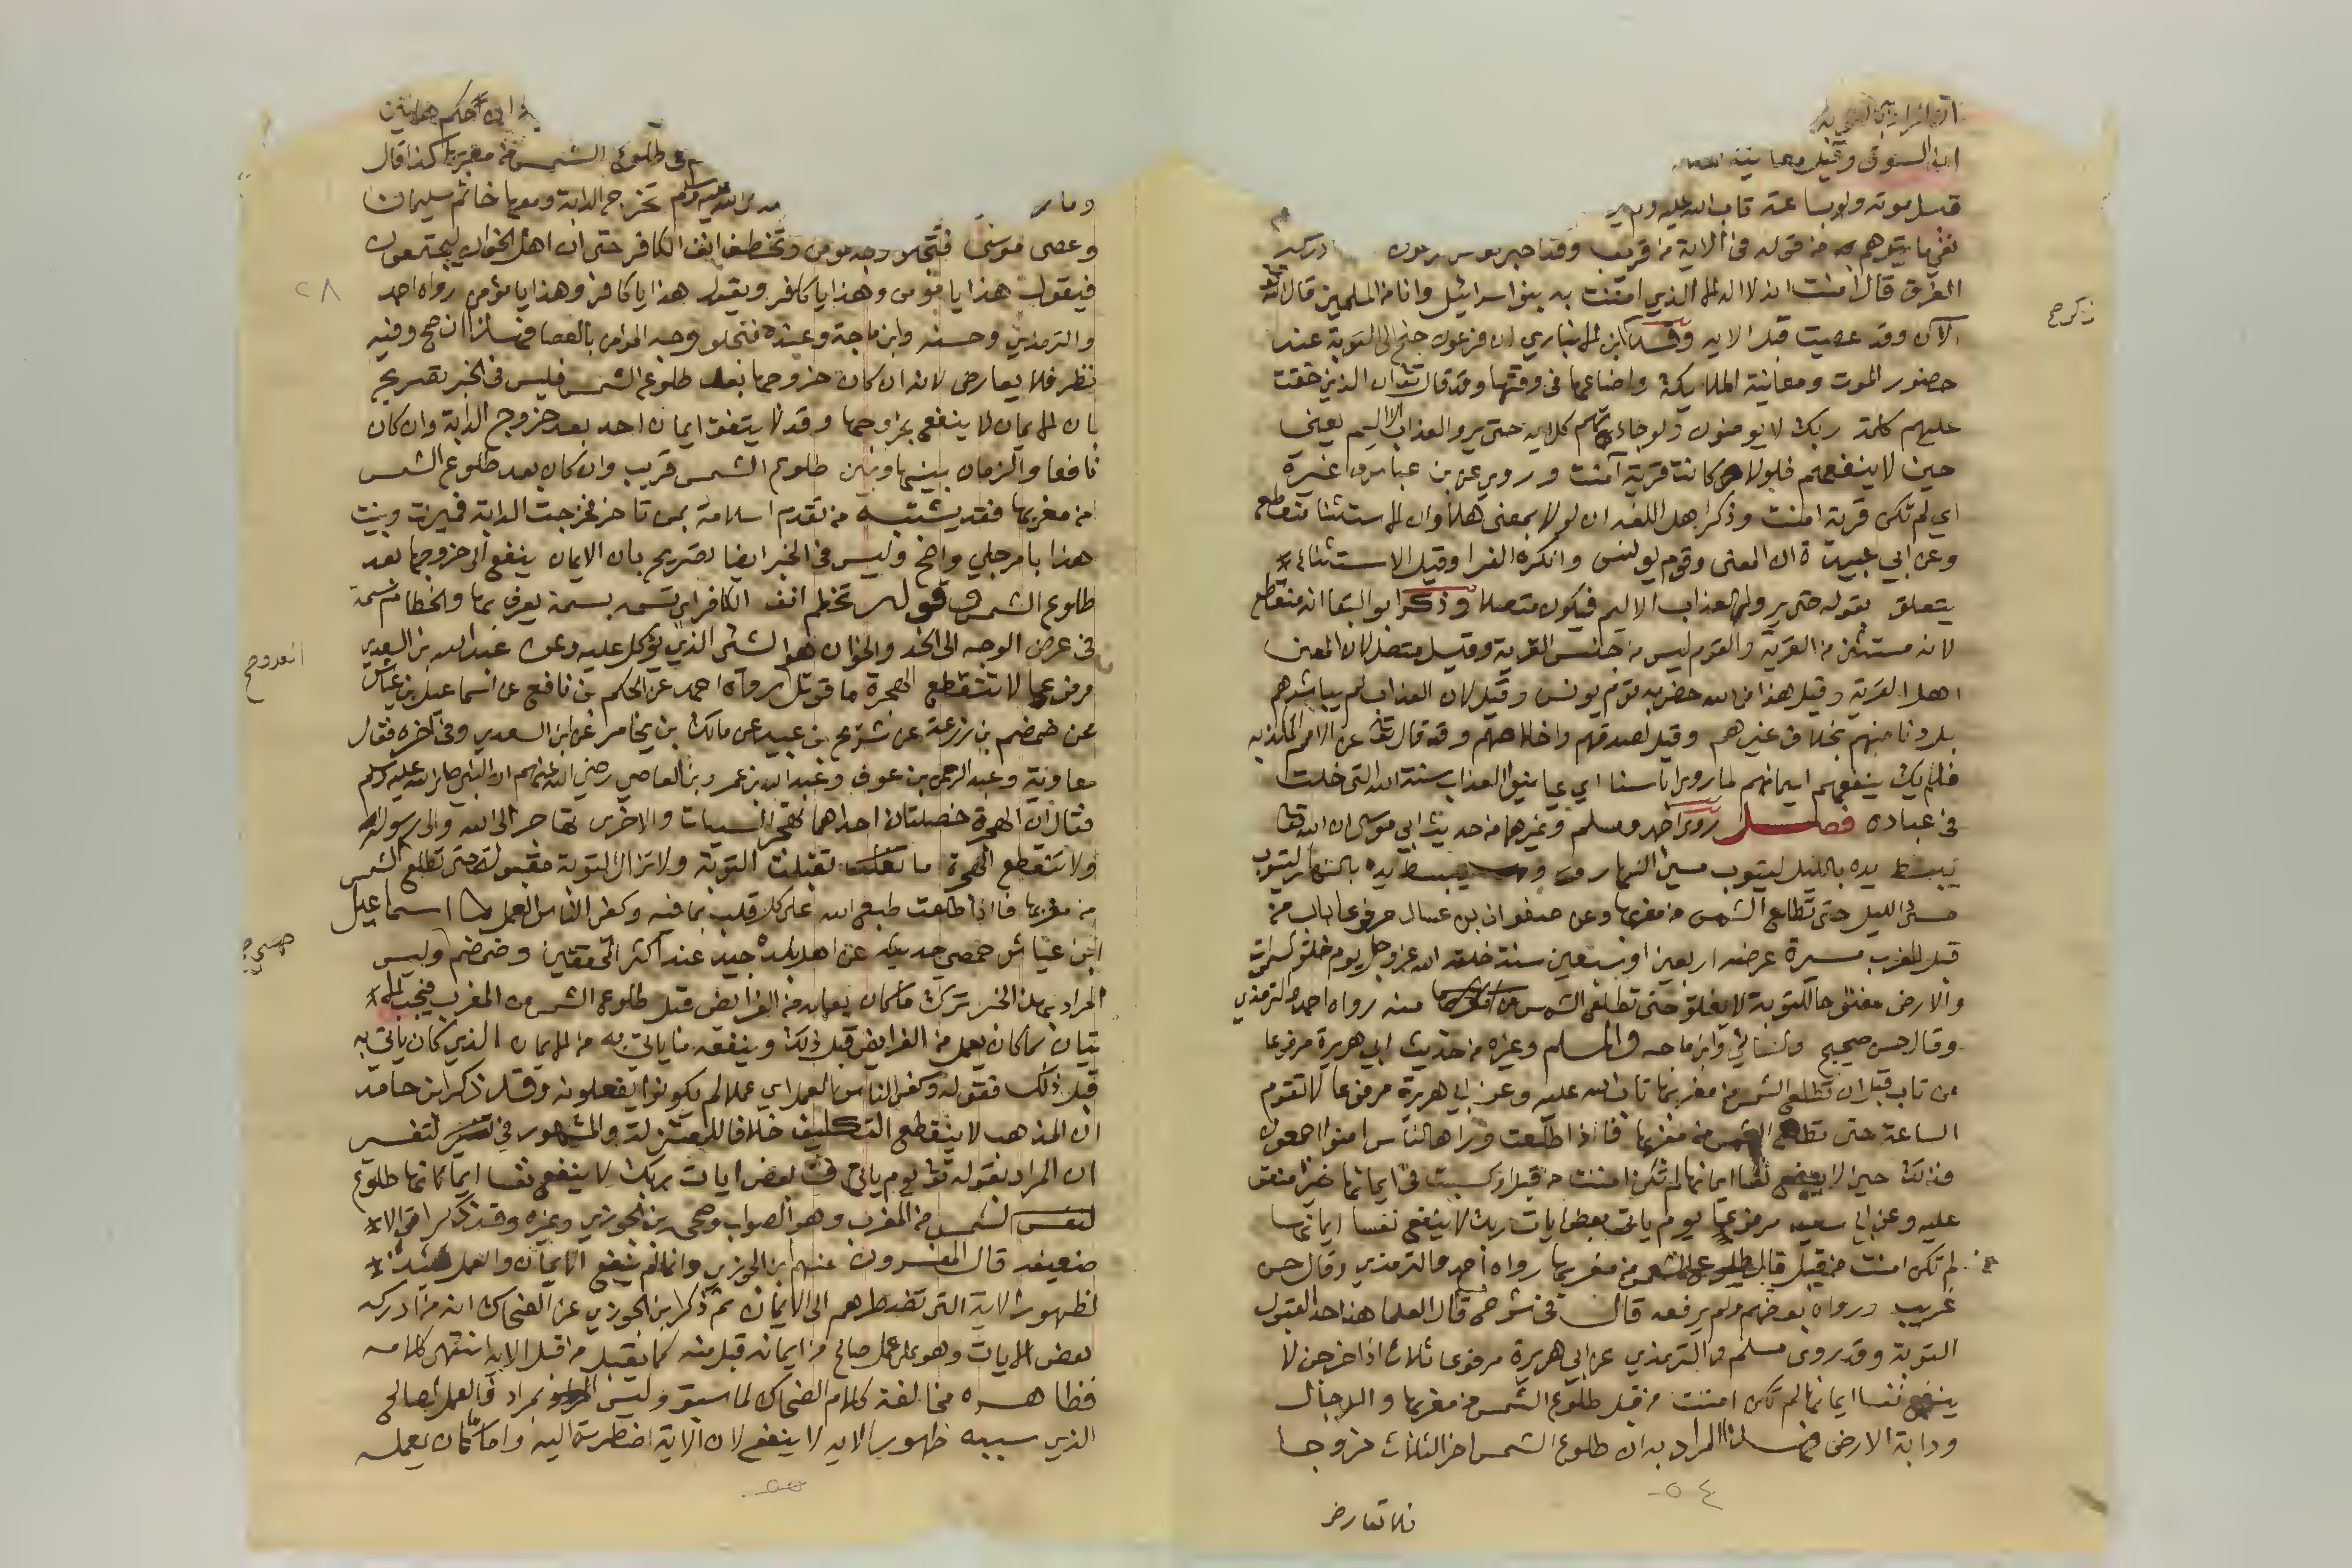 ابن السوق وقيل معاينة
قبل موته ولو بساعة تاب الله عليه ولم ير
نفي ما يتوهم من قوله في الآية من قريب وقد اخبر عن فرعون ادركه
الغرق قال امنت انه لا اله الا الذي امنت به بنوا اسرائيل وانا من المسلمين قال الله تعالى
الآن وقد عصيت قبل الايه وقال ابن الانباري ان فرعون جنح الى التوبة عند
حضور الموت ومعاينة الملايكة واضاعها في وقتها وقد قال تعالى ان الذين حقت
عليهم كلمة ربك لا يومنون ولو جاءتهم كل اية حتى يروا العذاب الاليم يعني
حين لا ينفعهم فلولا كانت قرية آمنت وروي عن بن عباس وغيره
اي لم تكن قرية امنت وذكر اهل اللغه ان لولا بمعنى هلا وان الاستثنا منقطع
وعن ابي عبيدة ان المعنى وقوم يونس وانكره الفرا وقيل الاستثناء
يتعلق بقوله حتى يروا العذاب الاليم فيكون متصلا وذكر ابو البقا انه منقطع
لانه مستثنى من القرية والقوم ليس من جنس القرية وقيل متصل لان المعنى
اهل القرية وقيل هذا من الله خص به قوم يونس وقيل لان العذاب لم يباشرهم
بل دنا منهم بخلاف غيرهم وقيل لصدقهم واخلاصهم وقد قال تعالى عن الامم المكذبه
فلم يك ينفعهم ايمانهم لما راوا باسنا اي عاينوا العذاب سنة الله التي خلت
في عباده فصل روى احمد ومسلم وغيرهما من حديث ابي موسى ان الله تعالى
يبسط يده بالليل ليتوب مسيئ النهار ويبسط يده بالنهار ليتوب
مسئ الليل حتى تطلع الشمس من مغربها وعن صفوان بن عسال مرفوعا باب من
قبل المغرب مسيرة عرضه اربعين او سبعين سنة خلقه الله عز وجل يوم خلق السموات
والارض مفتوحا للتوبة لا يغلق حتى تطلع الشمس منه رواه احمد والترمذي
وقال حسن صحيح والنسائي وابن ماجه ولمسلم وغيره من حديث ابي هريرة مرفوعا
من تاب قبل ان تطلع الشمس من مغربها تاب الله عليه وعن ابي هريرة مرفوعا لا تقوم
الساعة حتى تطلع الشمس من مغربها فاذا طلعت وراها الناس امنوا اجمعون
وذلك حين لا ينفع نفسا ايمانها لم تكن امنت من قبل او كسبت في ايمانها خيرا متفق
عليه وعن ابي سعيد مرفوعا يوم ياتي بعض ايات ربك لا ينفع نفسا ايمانها
لم تكن امنت من قبل قال طلوع الشمس من مغربها رواه احمد والترمذي وقال حسن
غريب ورواه بعضهم ولم يرفعه قال في شرح م قال العلما هذا حد لقبول
التوبة وقد روى مسلم والترمذي عن ابي هريرة مرفوعا ثلاث اذا خرجن لا
ينفع نفسا ايمانها لم تكن امنت من قبل طلوع الشمس من مغربها والدجال
ودابة الارض فهذا المراد به ان طلوع الشمس اخر الثلاث خروجا
فلا تعارض
ذكر صح
٥٤
طلوع الشمس من مغربها كذا قال
تخرج الدابة ومعها خاتم سليمان
وعصى موسى فتجلو وجه مومن وتخطف انف الكافر حتى ان اهل الخوان ليجتمعون
فيقول هذا يا مومن وهذا يا كافر ويقول هذا يا كافر وهذا يا مؤمن رواه احمد
والترمذي وحسنه وابن ماجة وعنده فتجلو وجه المؤمن بالعصا فهذا ان صح وفيه
نظر فلا يعارض لانه ان كان خروجها بعد طلوع الشمس فليس في الخبر تصريح
بان الايمان لا ينفع بخروجها وقد لا يتفق ايمان احد بعد خروج الدابة وان كان
نافعا والزمان بينها وبين طلوع الشمس قريب وان كان بعد طلوع الشمس
من مغربها فقد يشتبه من تقدم اسلامه بمن تاخر فخرجت الدابة فميزت وبينت
هذا بامر جلي واضح وليس في الخبر ايضا تصريح بان الايمان ينفع الى خروجها بعد
طلوع الشمس قوله تخطم انف الكافر اي تسمه بسمة يعرف بها والخطام سمة
في عرض الوجه الى الخد والخوان هو الشئ الذي يؤكل عليه وعن عبد الله بن السعدي
مرفوعا لا تنقطع الهجرة ما قوتل رواه احمد عن الحكم بن نافع عن اسماعيل بن عياش
عن ضمضم بن زرعة عن شريح بن عبيد عن مالك بن يخامر عن ابن السعدي وفي آخره فقال
معاوية وعبد الرحمن بن عوف وعبد الله بن عمرو بن العاصي رضي الله عنهم ان النبي صلى الله عليه وسلم
قال ان الهجرة خصلتان احداهما تهجر السيات والاخرى تهاجر الى الله والى رسوله
ولا تنقطع الهجرة ما تقبلت التوبة ولا تزال التوبة مقبولة حتى تطلع الشمس
من مغربها فاذا طلعت طبع الله على كل قلب بما فيه وكفى الناس العمل اسماعيل
ابن عياش حمصي حديثه عن اهل بلده جيد عند اكثر المحققين وضمضم وليس
المراد بهذا الخبر ترك ما كان يعمله من الفرايض قبل طلوع الشمس من المغرب فيجب
يتيان بما كان يعمل من الفرايض قبل ذلك وينفعه ما ياتي به من الايمان الذي كان ياتي به
قبل ذلك فقوله وكفى الناس العمل اي عملا لم يكونوا يفعلونه وقد ذكر ابن حامد
ان المذهب لا ينقطع التكليف خلافا للمعتزلة والمشهور في لتفسير
ان المراد بقوله تعالى يوم ياتي بعض ايات ربك لا ينفع نفسا ايمانها طلوع
الشمس من المغرب وهو الصواب وصححه بن الجوزي وغيره وقد ذكر اقوالا
ضعيفة قال المفسرون منهم ابن الجوزي وانما لم ينفع الايمان والعمل حينئذ
لظهور الاية التي تضطرهم الى الايمان ثم ذكر ابن الجوزي عن الضحاك ان من ادركه
بعض الايات وهو على عمل صالح من ايمانه قبل منه كما يقبل من قبل الاية انتهى كلامه
فظاهره مخالفة كلام الضحاك لما سبق وليس بمراد فالعمل لصالح
الذي سببه ظهور الايه لا ينفع لان الاية اضطرته اليه واما ما كان يعمله
٢٨
صح
٥٥